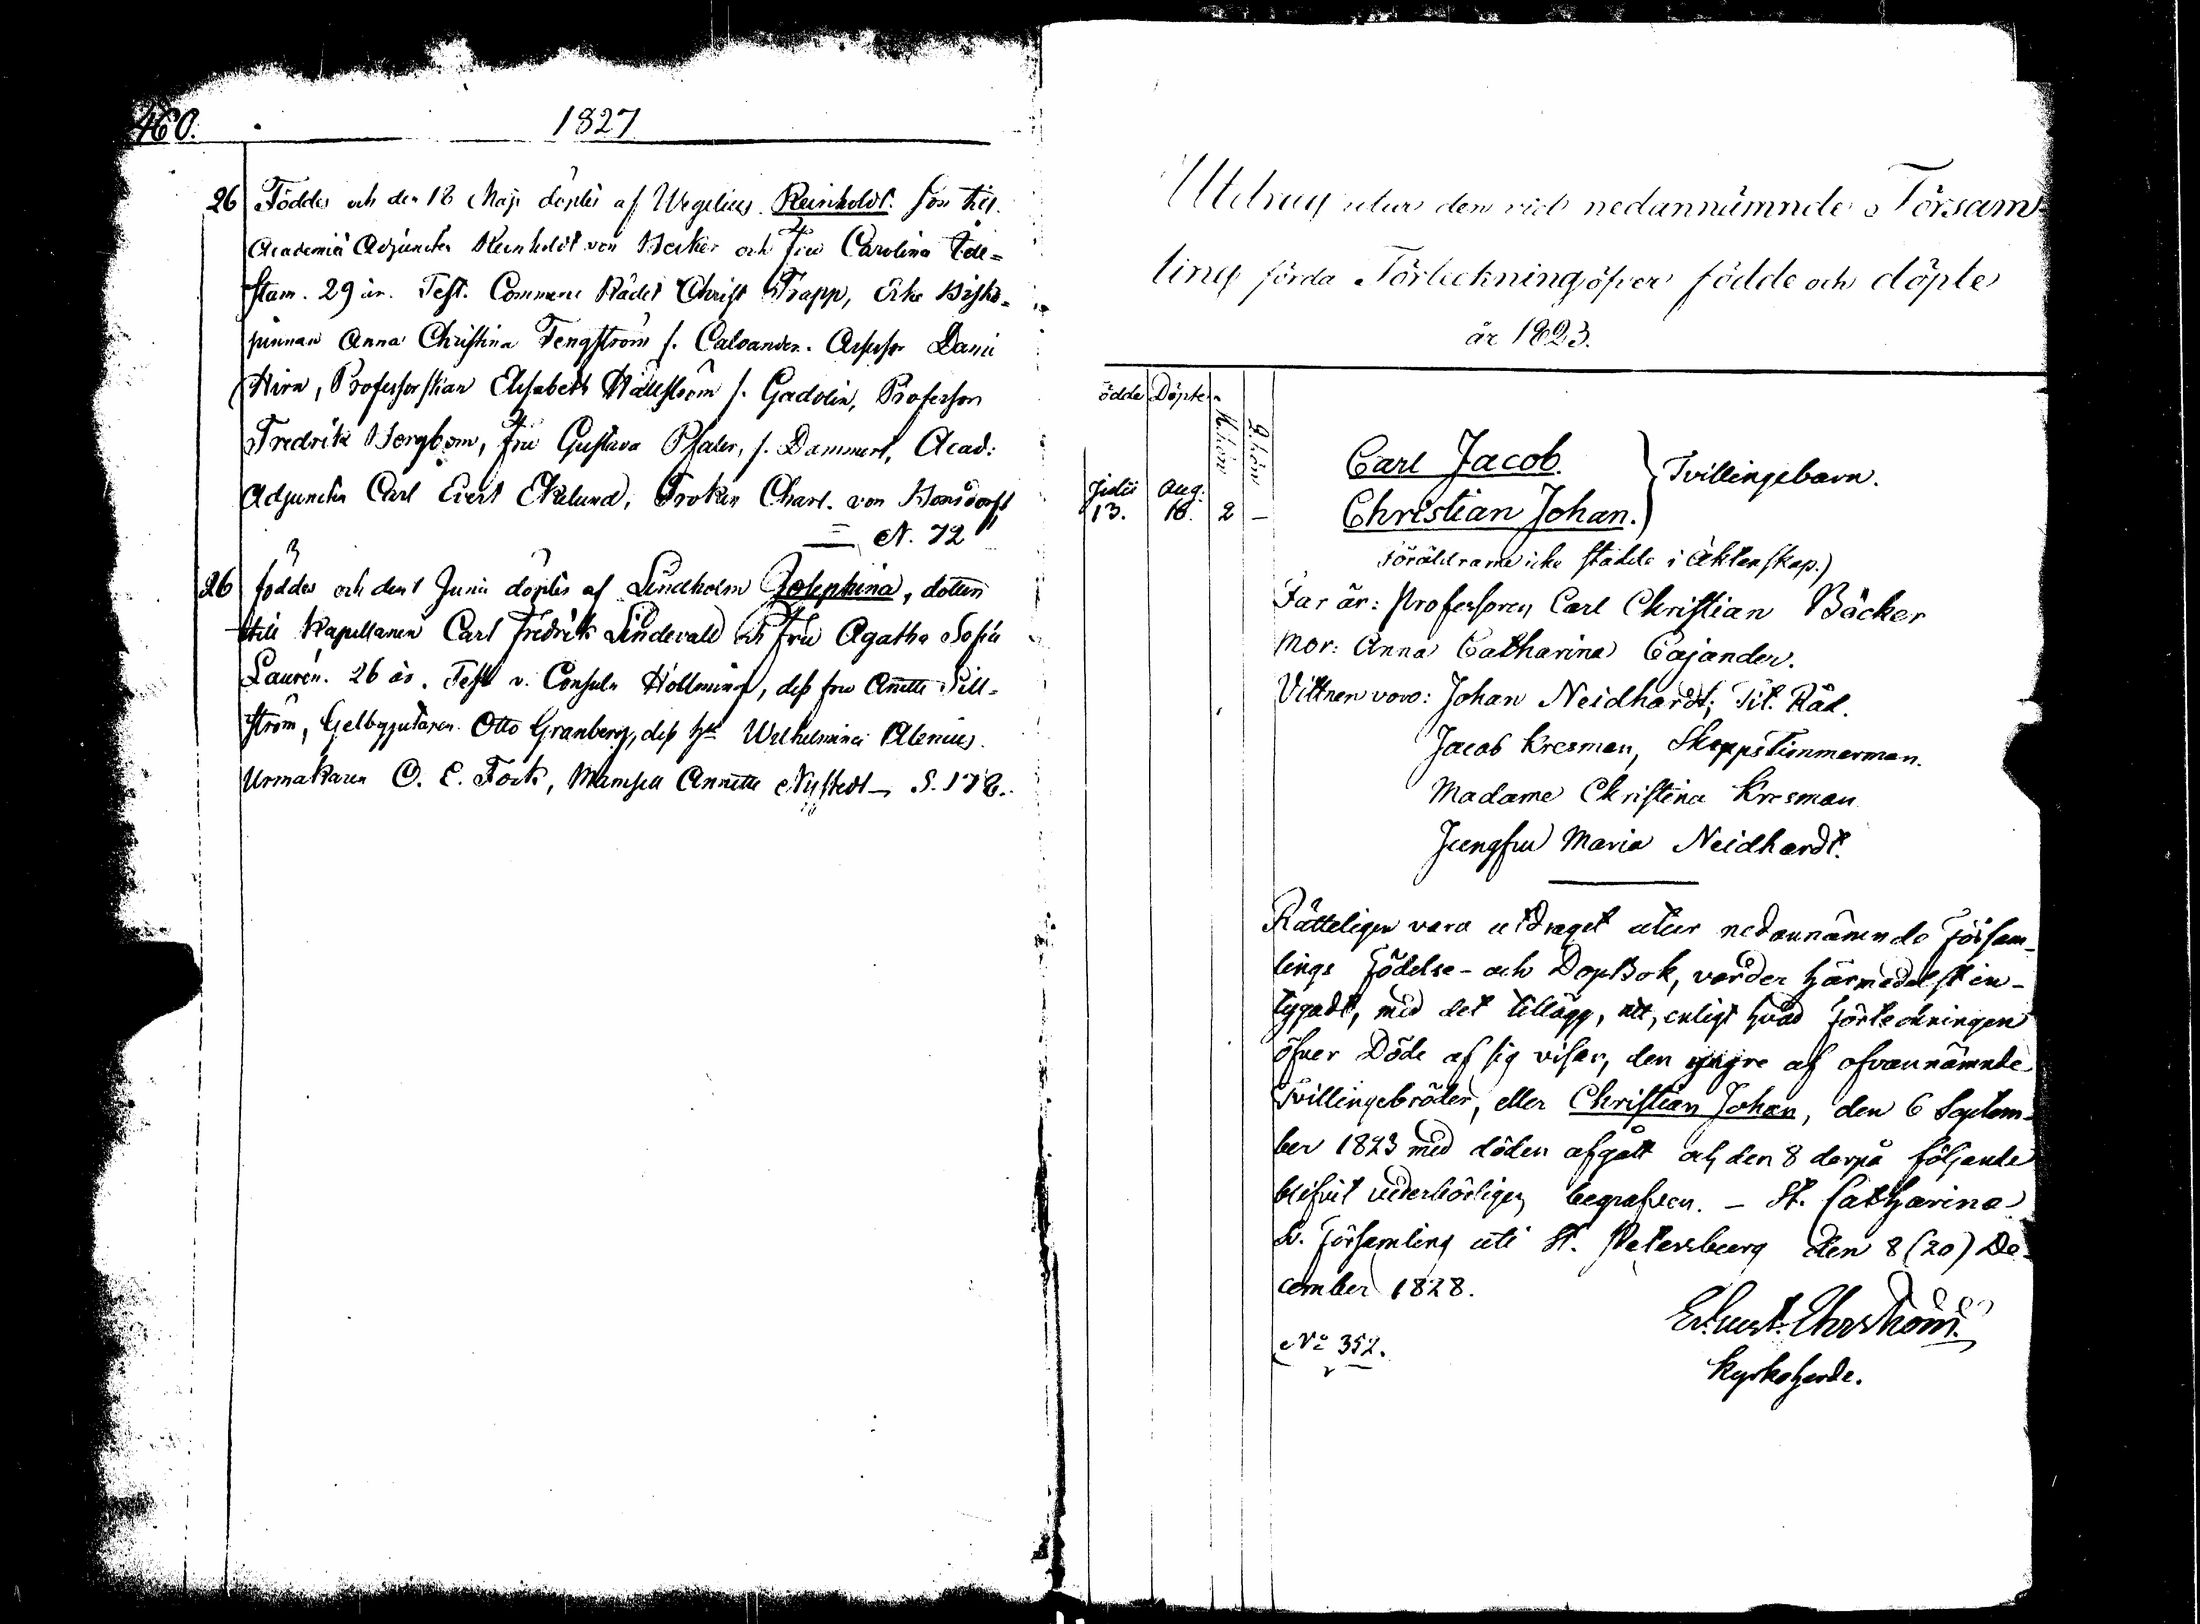 460.
1827
26 Föddes och den 18 Maji döptes af Wegelius Reinholdt. son till
Academiæ Adjuncten Reinholdt von Becker och Fru Carolina Edel=
stam. 29 år. Test. Commerce Rådet Christ Trapp, Erke Bisko=
pinnan Anna Christina Tengström f. Caloander. Assessor Daniel
Hirn, Professorskan Elisabeth Hällström f. Gadolin, Professor
Fredrik Bergbom, Fru Gustava Pfaler, f. Dammert, Acad:
Adjuncten Carl Evert Ekelund, Fröken Charl. von Bonsdorff
= N. 72
26 föddes och den 1 Junii döptes af Lindholm Josephina, dotter
till Kapellanen Carl Fredrik Lindevall och Fru Agatha Sofia
Laurén. 26 år. Test v. Consuln Höllming, dess fru Anette Sill=
ström, Gelbgjutaren Otto Granberg, dess h. Wilhelmina Alenius.
Urmakaren O. E. Fock, Mamsell Annette Nystedt — S.
Utdrag utur den vid nedannämnde Försam=
ling förda Förteckning öfver födde och döpte
år 1823.
ödde Döpte
M.kön Q.kön
Carl Jacob.
Tvillingebarn.
Julii Aug.
13. 18. 2 —
Christian Johan.
Föräldrarne icke stadde i äktenskap.)
Far är: Professoren Carl Christian Bäcker
Mor: Anna Catharina Cajander.
Vittnen voro: Johan Neidhardt, Tit. Råd.
Jacob Kresman, Skeppstimmerman.
Madame Christina Kresman
Jungfru Maria Neidhardt.
Rätteligen vara utdraget utur nedannämnde Försam=
lings Födelse- och DopBok, varder härmedelst in-
tygadt, med det tillägg, att, enligt hvad Förteckningen
öfver Döde af sig visar, den yngre af ofvannämnde
Tvillingebröder, eller Christian Johan, den 6 Septem=
ber 1823 med döden afgått och den 8 derpå följande
blifvit vederbörligen begrafven. — St. Catharina
Sv. Församling uti St. Petersburg den 8 (20) De-
cember 1828.
Ehrström.
No 352.
Kyrkoherde.